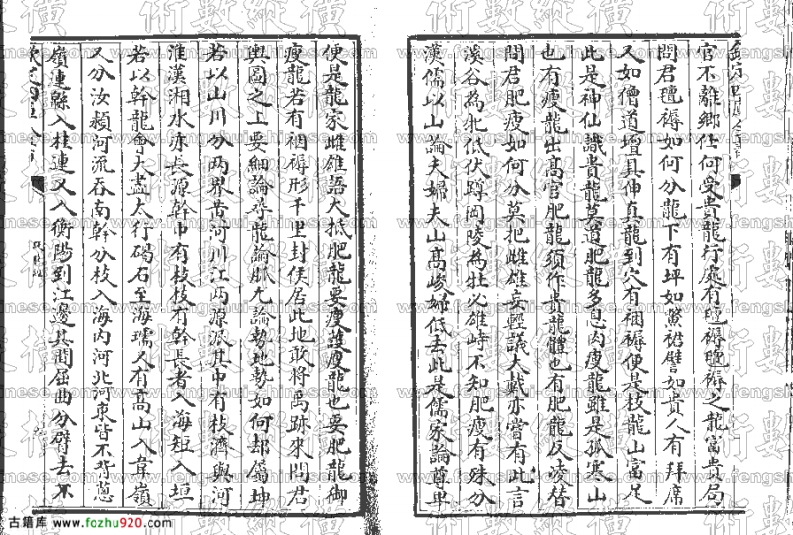 官不離鄉任何受貴龍行處有氊褥氊褥之龍富貴局
問君氊褥如何分龍下有坪如鱉裙譬如貴人有拜席
又如僧道壇具伸真龍到穴有裀褥便是枝龍山富足
此是神仙識貴龍莫道肥龍多息肉瘦龍雖是孤寒山
也有瘦龍出高官肥龍須作貴龍體也有肥龍反凌替
問君肥瘦如何分莫把雌雄妄輕議大戴亦嘗有此言
溪谷為牝低伏蹲岡陵為牡必雄峙不知肥瘦有殊分
漢儒以山論夫婦夫山高峻婦低去此是儒家論尊卑
便是龍家雌雄語大抵肥龍要瘦護瘦龍也要肥龍御
瘦龍若有裀褥形千里封侯居此地敢將禹跡來問君
輿圖之上要細論尋龍論脈尤論勢地勢如何却屬坤
若以山川分兩界黃河川江兩源派其中有枝濟與河
淮漢湘水亦長源幹中有枝枝有幹長者入海短入垣
若以幹龍會大盡太行碣石至海壖又有高山入韋嶺
又分汝潁河流吞南幹分枝入海內河北河東皆不背蔥
嶺連緜入桂連又入衡陽到江邊其間屈曲分臂去不
術數縱橫
www.fengshui-chinese.com
古籍库 www.fozhu920.com